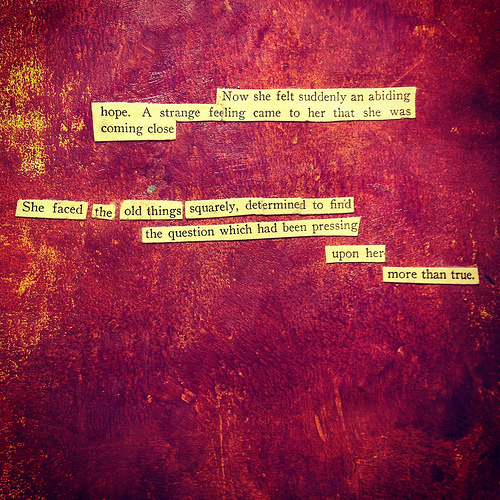 Now she felt suddenly an abiding
hope. A strange feeling came to her that she was
coming close
She faced the old things squarely, determined to find
the question which had been pressing
upon her
more than true.